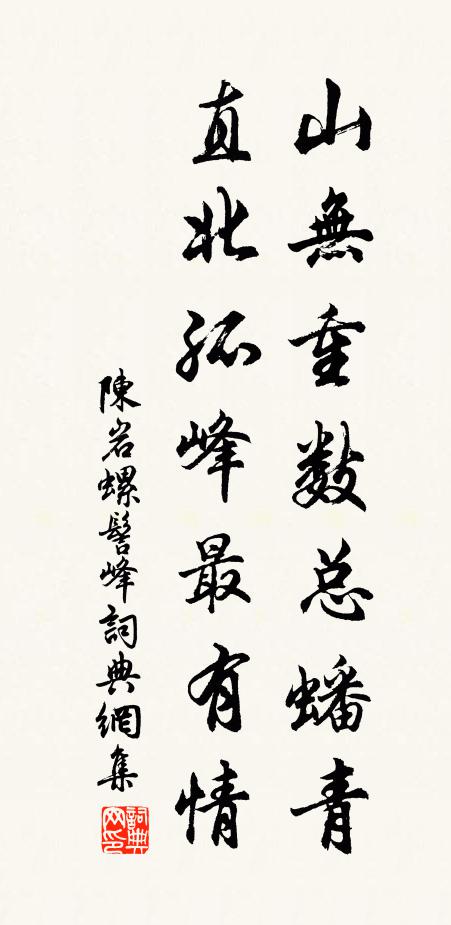 山無重数总蟠青
直北孤峰最有情
陳岩螺髻峰詞典網集
詞典网印